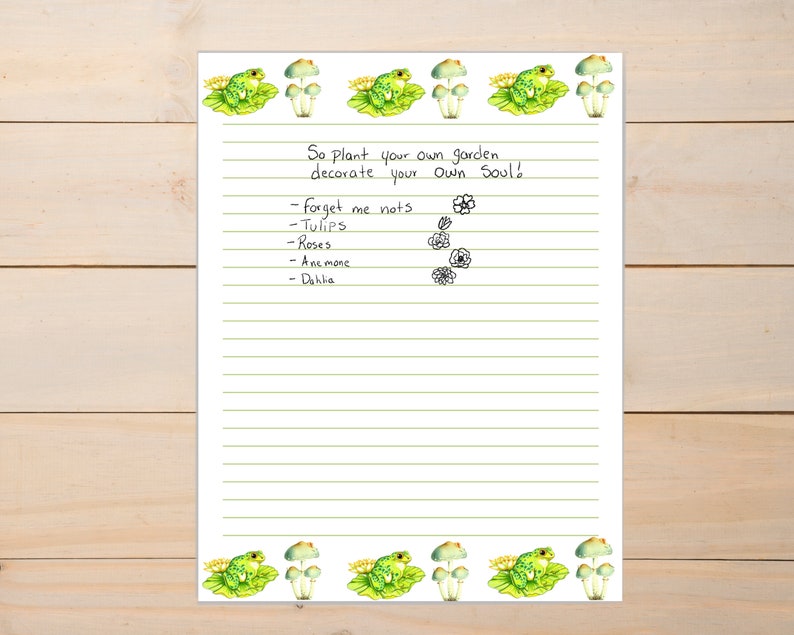 So plant your own garden
decorate your own soul!
- Forget me nots
- Tulips
- Roses
- Anemone
- Dahlia